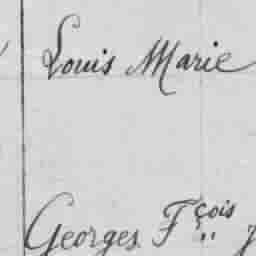 Louis Marie
Georges Fçois